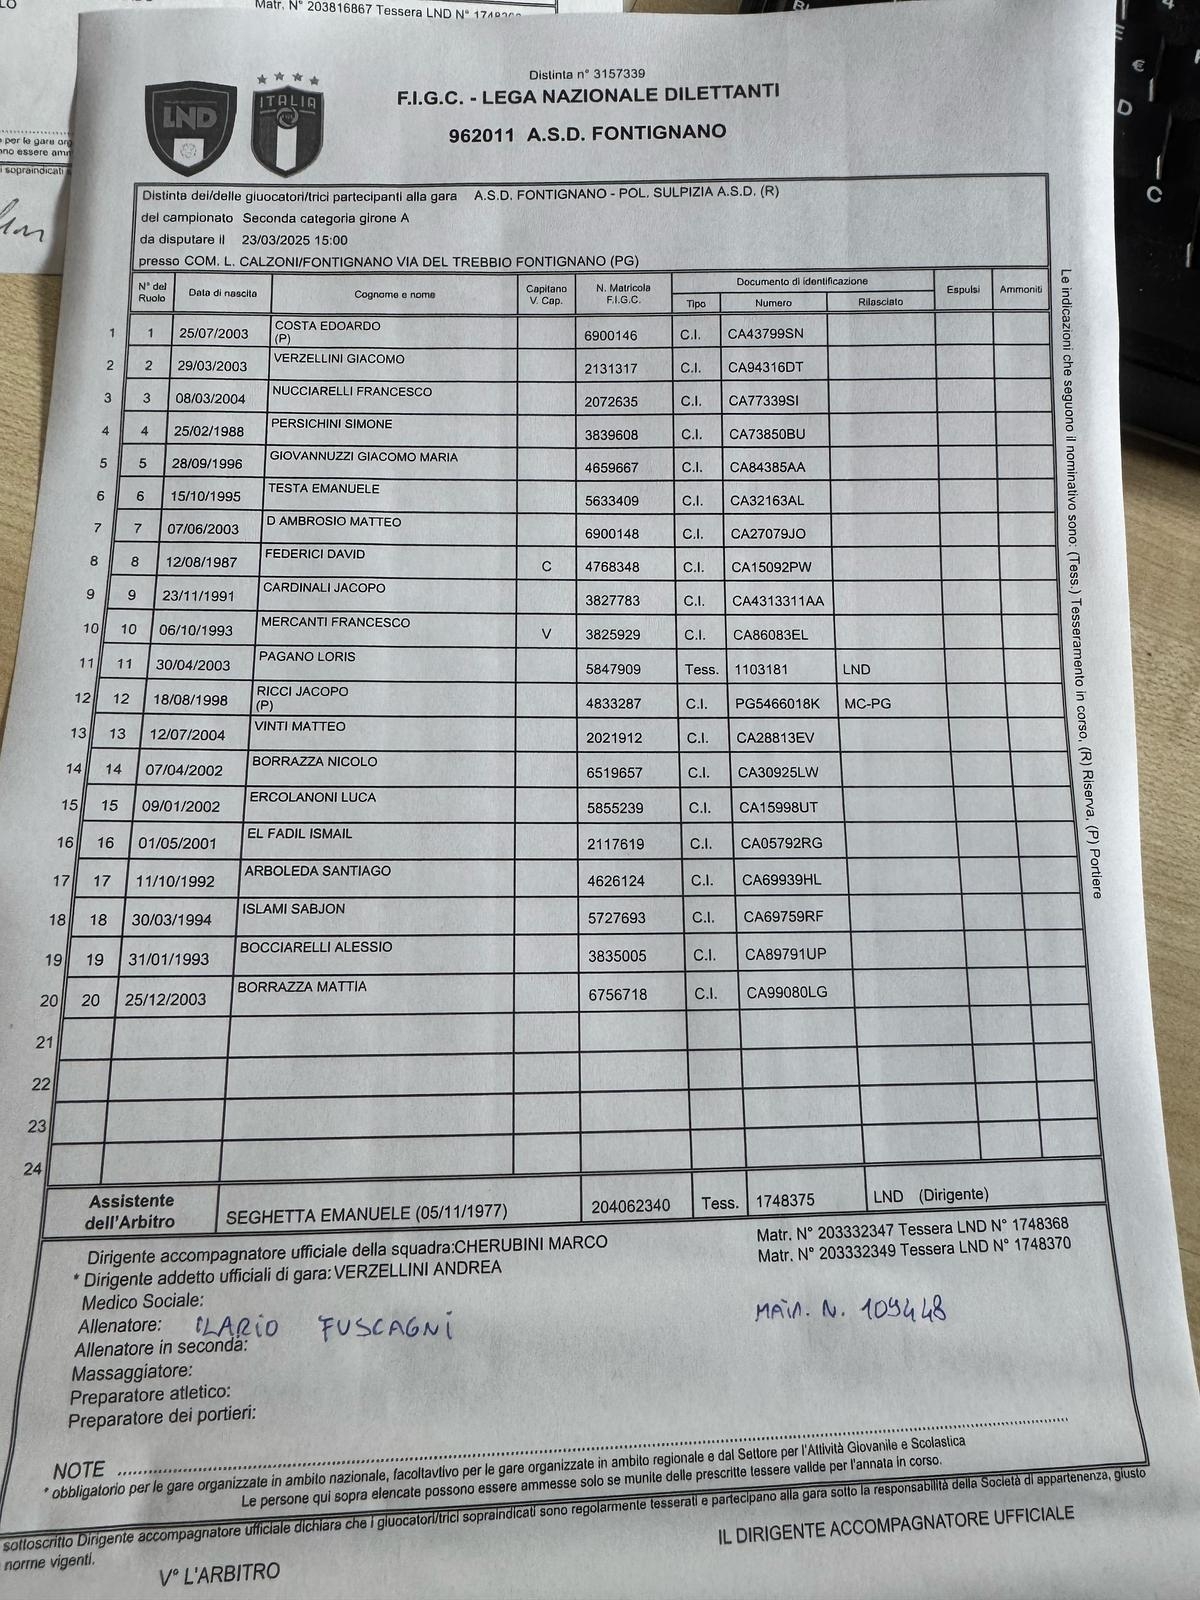 Matr. N° 203816867 Tessera LND N°
Distinta n° 3157339
F.I.G.C. - LEGA NAZIONALE DILETTANTI
962011 A.S.D. FONTIGNANO
LND
ITALIA
Distinta dei/delle giuocatori/trici partecipanti alla gara A.S.D. FONTIGNANO - POL. SULPIZIA A.S.D. (R)
del campionato Seconda categoria girone A
da disputare il 23/03/2025 15:00
presso COM. L. CALZONI/FONTIGNANO VIA DEL TREBBIO FONTIGNANO (PG)
N° del Ruolo Data di nascita Cognome e nome Capitano V. Cap. N. Matricola F.I.G.C. Documento di identificazione Espulsi Ammoniti
Tipo Numero Rilasciato
1 1 25/07/2003 COSTA EDOARDO (P) 6900146 C.I. CA43799SN
2 2 29/03/2003 VERZELLINI GIACOMO 2131317 C.I. CA94316DT
3 3 08/03/2004 NUCCIARELLI FRANCESCO 2072635 C.I. CA77339SI
4 4 25/02/1988 PERSICHINI SIMONE 3839608 C.I. CA73850BU
5 5 28/09/1996 GIOVANNUZZI GIACOMO MARIA 4659667 C.I. CA84385AA
6 6 15/10/1995 TESTA EMANUELE 5633409 C.I. CA32163AL
7 7 07/06/2003 D AMBROSIO MATTEO 6900148 C.I. CA27079JO
8 8 12/08/1987 FEDERICI DAVID C 4768348 C.I. CA15092PW
9 9 23/11/1991 CARDINALI JACOPO 3827783 C.I. CA4313311AA
10 10 06/10/1993 MERCANTI FRANCESCO V 3825929 C.I. CA86083EL
11 11 30/04/2003 PAGANO LORIS 5847909 Tess. 1103181 LND
12 12 18/08/1998 RICCI JACOPO (P) 4833287 C.I. PG5466018K MC-PG
13 13 12/07/2004 VINTI MATTEO 2021912 C.I. CA28813EV
14 14 07/04/2002 BORRAZZA NICOLO 6519657 C.I. CA30925LW
15 15 09/01/2002 ERCOLANONI LUCA 5855239 C.I. CA15998UT
16 16 01/05/2001 EL FADIL ISMAIL 2117619 C.I. CA05792RG
17 17 11/10/1992 ARBOLEDA SANTIAGO 4626124 C.I. CA69939HL
18 18 30/03/1994 ISLAMI SABJON 5727693 C.I. CA69759RF
19 19 31/01/1993 BOCCIARELLI ALESSIO 3835005 C.I. CA89791UP
20 20 25/12/2003 BORRAZZA MATTIA 6756718 C.I. CA99080LG
21
22
23
24
Le indicazioni che seguono il nominativo sono: (Tess.) Tesseramento in corso, (R) Riserva, (P) Portiere
Assistente dell'Arbitro SEGHETTA EMANUELE (05/11/1977) 204062340 Tess. 1748375 LND (Dirigente)
Dirigente accompagnatore ufficiale della squadra:CHERUBINI MARCO Matr. N° 203332347 Tessera LND N° 1748368
* Dirigente addetto ufficiali di gara:VERZELLINI ANDREA Matr. N° 203332349 Tessera LND N° 1748370
Medico Sociale:
Allenatore: ILARIO FUSCAGNI MATR. N. 109448
Allenatore in seconda:
Massaggiatore:
Preparatore atletico:
Preparatore dei portieri:
NOTE
* obbligatorio per le gare organizzate in ambito nazionale, facoltavtivo per le gare organizzate in ambito regionale e dal Settore per l'Attività Giovanile e Scolastica
Le persone qui sopra elencate possono essere ammesse solo se munite delle prescritte tessere valide per l'annata in corso.
sottoscritto Dirigente accompagnatore ufficiale dichiara che i giuocatori/trici sopraindicati sono regolarmente tesserati e partecipano alla gara sotto la responsabilità della Società di appartenenza, giusto
norme vigenti.
V° L'ARBITRO IL DIRIGENTE ACCOMPAGNATORE UFFICIALE